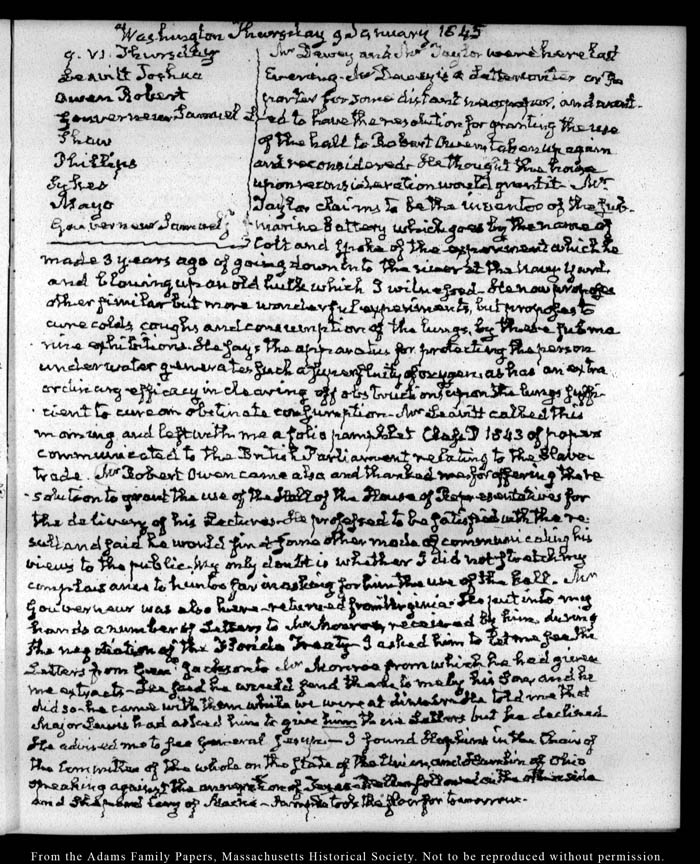 Washington Thursday 9. January 1845
9. VI. Thursday
Leavitt Joshua
Owen Robert
Gouverneur Samuel L
Shaw
Phillips
Sykes
Mayo
Gouverneur Samuel jr
Mr Dewey and Mr Taylor were here last
Evening. Mr Dewey is a Letter writer or Re
porter for some distant newspaper, and want-
ed to have the resolution for granting the use
of the hall to Robert Owen taken up again
and reconsidered. He thought the house
upon reconsideration would grant it. Mr
Taylor claims to be the inventor of the sub-
marine Battery which goes by the name of
Colt and spoke of the experiment which he
made 3 years ago of going down into the river at the Navy Yard
and blowing up an old hulk which I witnessed. He now proposes
other similar but more wonderful experiments, but proposes to
cure colds coughs and consumption of the lungs, by these subma
rine exhibitions. He says the apparatus for protecting the person
under water generates such a superfluity of oxygen, as has an extra
ordinary efficacy in clearing off obstructions upon the lungs suffi-
cient to cure an obstinate consumption. Mr Leavitt called this
morning and left with me a folio pamphlet Class D 1843 of papers
communicated to the British Parliament relating to the Slave
trade. Mr Robert Owen came also and thanked me for offering the re
solution to grant the use of the Hall of the House of Representatives for
the delivery of his Lectures. He professed to be satisfied with the re-
sult and said he would find some other mode of communicating his
views to the public. My only doubt is whether I did not stretch my
complaisance to him too far in asking for him the use of the hall. Mr
Gouverneur was also here returned from Virginia. He put into my
hands a number of Letters to Mr Monroe, received by him during
the negotiation of the Florida Treaty. I asked him to let me see the
Letters from Genl Jackson to Mr Monroe from which he had given
me extracts. He said he would send them to me by his Son, and he
did so. he came with them while we were at dinner. He told me that
Major Lewis had asked him to give him these Letters but he declined
He advised me to see General Jesup. I found Hopkins in the Chair of
the Committee of the whole on the state of the Union, and Hamlin of Ohio
speaking against the annexation of Texas. followed on the other side
and Shepard Cary of Maine. took the floor for tomorrow.
From the Adams Family Papers, Massachusetts Historical Society. Not to be reproduced without permission.